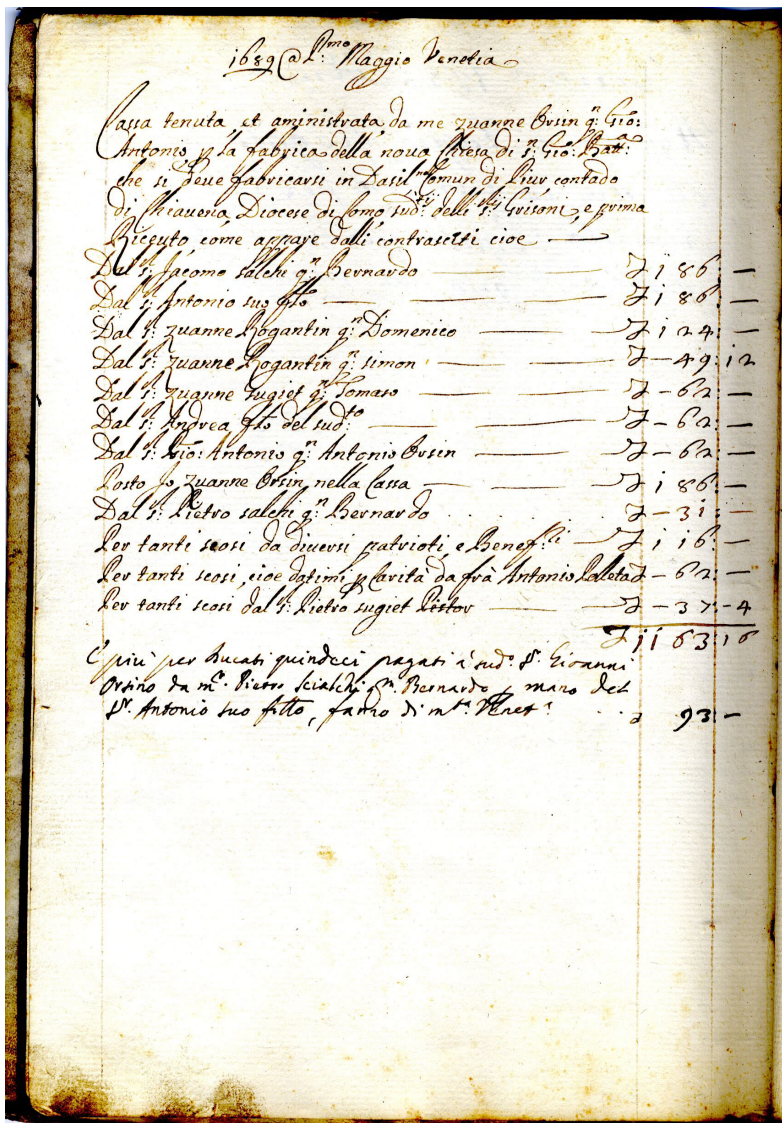 1689 @ P.mo Maggio Venetia
Cassa tenuta, et aministrata da me Zuanne Orsin q.m Gio:
Antonio, p la fabrica della nova Chiesa di S.n Gio: Batt.a
che si deve fabricarsi in Dasil nel Comun di Piur contado
di Chiavena, Diocese di Como, sud.ti delli SS.ri Grisoni, e prima
Riceuto, come appare dalli contrascritti cioe —
Dal S.r Jacomo Salchi q.m Bernardo — — — L 186: —
Dal S.r Antonio suo fio — — — L 186: —
Dal S.r Zuanne Rogantin q.m Domenico — — — L 124: —
Dal S.r Zuanne Rogantin q.m Simon — — — L — 49: 12
Dal S.r Zuanne Sugiet q.m Tomaso — — — L — 62: —
Dal S.r Andrea fio del sud.to — — — L — 62: —
Dal S.r Gio: Antonio q.m Antonio Orsin — — L — 62: —
Posto Jo Zuanne Orsin nella Cassa — — — L 186: —
Dal S.r Pietro Salchi q.m Bernardo . . . . L — 31: —
Per tanti scosi da diversi patrioti, e Benef.ri — L 116: —
Per tanti scosi, cioe datimi p Carita da frà Antonio Paleta L — 62: —
Per tanti scosi dal S.r Pietro Sugiet Pistor — — L — 37: — 4
L 1163: 16
E più per Ducati quindeci pagati à sud.o S.r Giovanni
Orsino da m.r Pietro Sciaschi q.m Bernardo p mano del
S.r Antonio suo fillo, fanno di m.ta Venet.a . . L 93: —